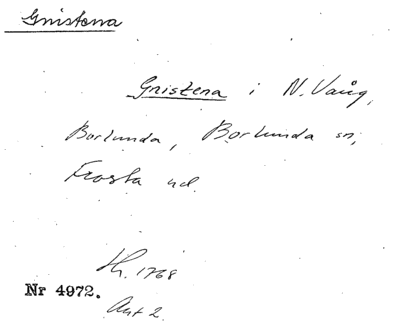 Gnistena
Gnistena i N. Vång,
Borlunda, Borlunda sn,
Frosta hd.
Th. 1768
Nr 4972.
Akt 2.